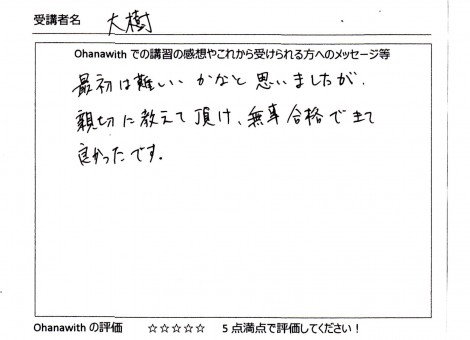 受講者名 大樹
Ohanawith での講習の感想やこれから受けられる方へのメッセージ等
最初は難しいかなと思いましたが、
親切に教えて頂け、無事合格できて
良かったです。
Ohanawith の評価 ☆☆☆☆☆ 5点満点で評価してください！